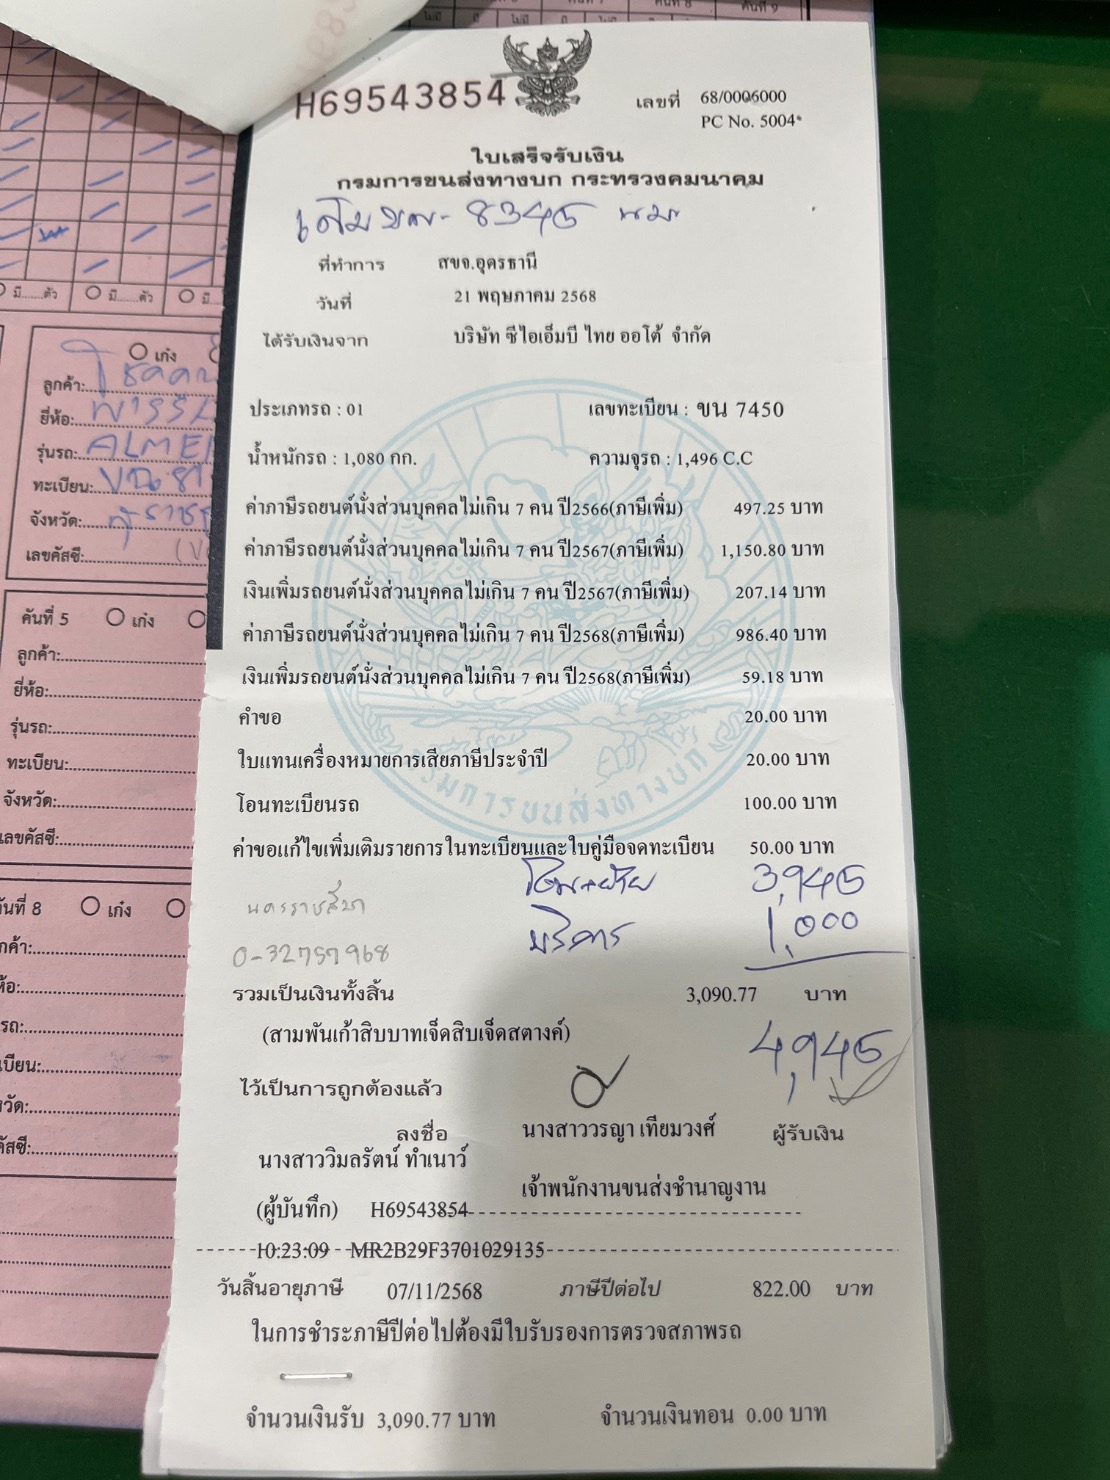 H69543854
เลขที่ 68/0006000
PC No. 5004*
ใบเสร็จรับเงิน
กรมการขนส่งทางบก กระทรวงคมนาคม
เดิม 8345 นม
ที่ทำการ สขจ.อุดรธานี
วันที่ 21 พฤษภาคม 2568
ได้รับเงินจาก บริษัท ซีไอเอ็มบี ไทย ออโต้ จำกัด
ประเภทรถ : 01 เลขทะเบียน : ขน 7450
น้ำหนักรถ : 1,080 กก. ความจุรถ : 1,496 C.C
ค่าภาษีรถยนต์นั่งส่วนบุคคลไม่เกิน 7 คน ปี2566(ภาษีเพิ่ม) 497.25 บาท
ค่าภาษีรถยนต์นั่งส่วนบุคคลไม่เกิน 7 คน ปี2567(ภาษีเพิ่ม) 1,150.80 บาท
เงินเพิ่มรถยนต์นั่งส่วนบุคคลไม่เกิน 7 คน ปี2567(ภาษีเพิ่ม) 207.14 บาท
ค่าภาษีรถยนต์นั่งส่วนบุคคลไม่เกิน 7 คน ปี2568(ภาษีเพิ่ม) 986.40 บาท
เงินเพิ่มรถยนต์นั่งส่วนบุคคลไม่เกิน 7 คน ปี2568(ภาษีเพิ่ม) 59.18 บาท
คำขอ 20.00 บาท
ใบแทนเครื่องหมายการเสียภาษีประจำปี 20.00 บาท
กรมการขนส่งทางบก
โอนทะเบียนรถ 100.00 บาท
ค่าขอแก้ไขเพิ่มเติมรายการในทะเบียนและใบคู่มือจดทะเบียน 50.00 บาท
โอน+ย้าย 3,945
นครราชสีมา
บริการ 1,000
0-32757968
รวมเป็นเงินทั้งสิ้น 3,090.77 บาท
(สามพันเก้าสิบบาทเจ็ดสิบเจ็ดสตางค์)
4,945
ไว้เป็นการถูกต้องแล้ว
ลงชื่อ นางสาววรญา เทียมวงศ์ ผู้รับเงิน
นางสาววิมลรัตน์ ทำเนาว์
เจ้าพนักงานขนส่งชำนาญงาน
(ผู้บันทึก) H69543854
10:23:09 MR2B29F3701029135
วันสิ้นอายุภาษี 07/11/2568 ภาษีปีต่อไป 822.00 บาท
ในการชำระภาษีปีต่อไปต้องมีใบรับรองการตรวจสภาพรถ
จำนวนเงินรับ 3,090.77 บาท จำนวนเงินทอน 0.00 บาท
มี......ตัว มี......ตัว มี
เก๋ง
ลูกค้า:
ยี่ห้อ:
รุ่นรถ: ALME
ทะเบียน:
จังหวัด:
เลขคัสซี:
คันที่ 5 เก๋ง
ลูกค้า:
ยี่ห้อ:
รุ่นรถ:
ทะเบียน:
จังหวัด:
เลขคัสซี:
คันที่ 8 เก๋ง